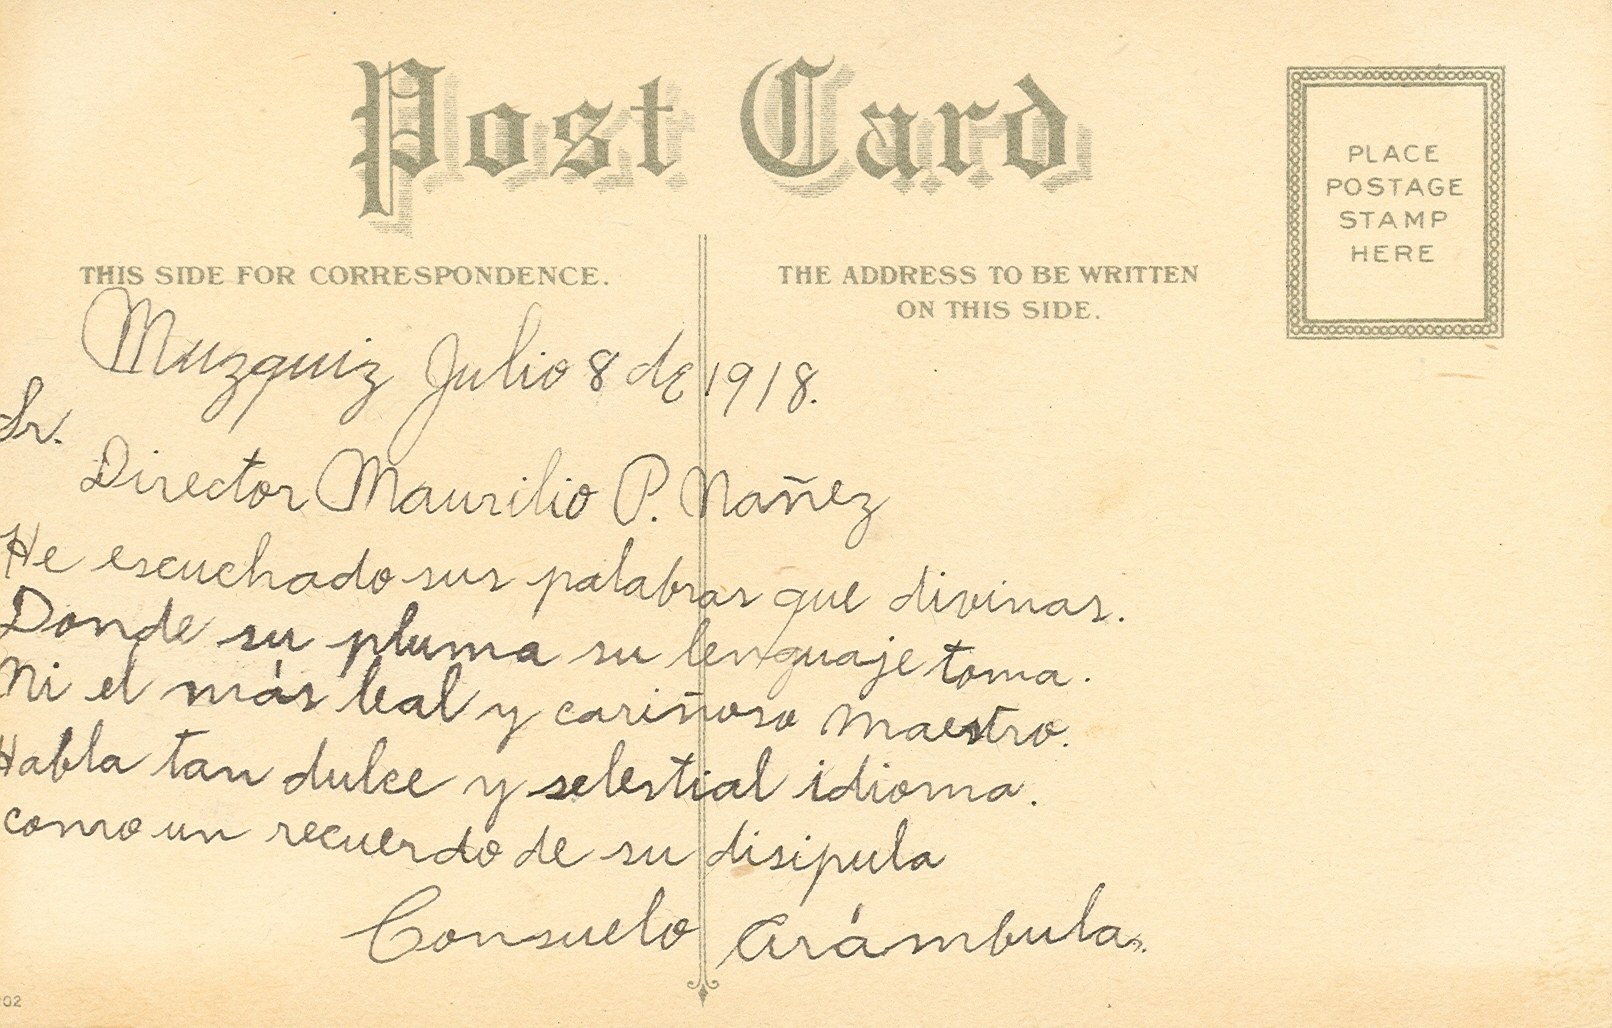 Post Card
THIS SIDE FOR CORRESPONDENCE.
THE ADDRESS TO BE WRITTEN
ON THIS SIDE.
PLACE
POSTAGE
STAMP
HERE
Muzquiz Julio 8 de 1918.
Sr.
Director Maurilio P. Nañez
He escuchado sus palabras que divinas.
Donde su pluma su lenguaje toma.
Ni el más leal y cariñoso maestro.
Habla tan dulce y selestial idioma.
como un recuerdo de su disipula
Consuelo Arámbula.
202